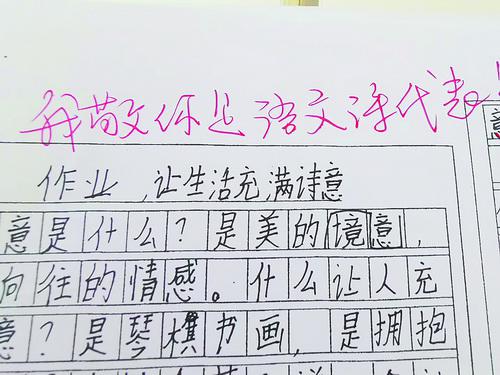 我敬你是语文课代表!
作业,让生活充满诗意
意是什么?是美的境意,
向往的情感。什么让人充
意?是琴棋书画,是拥抱